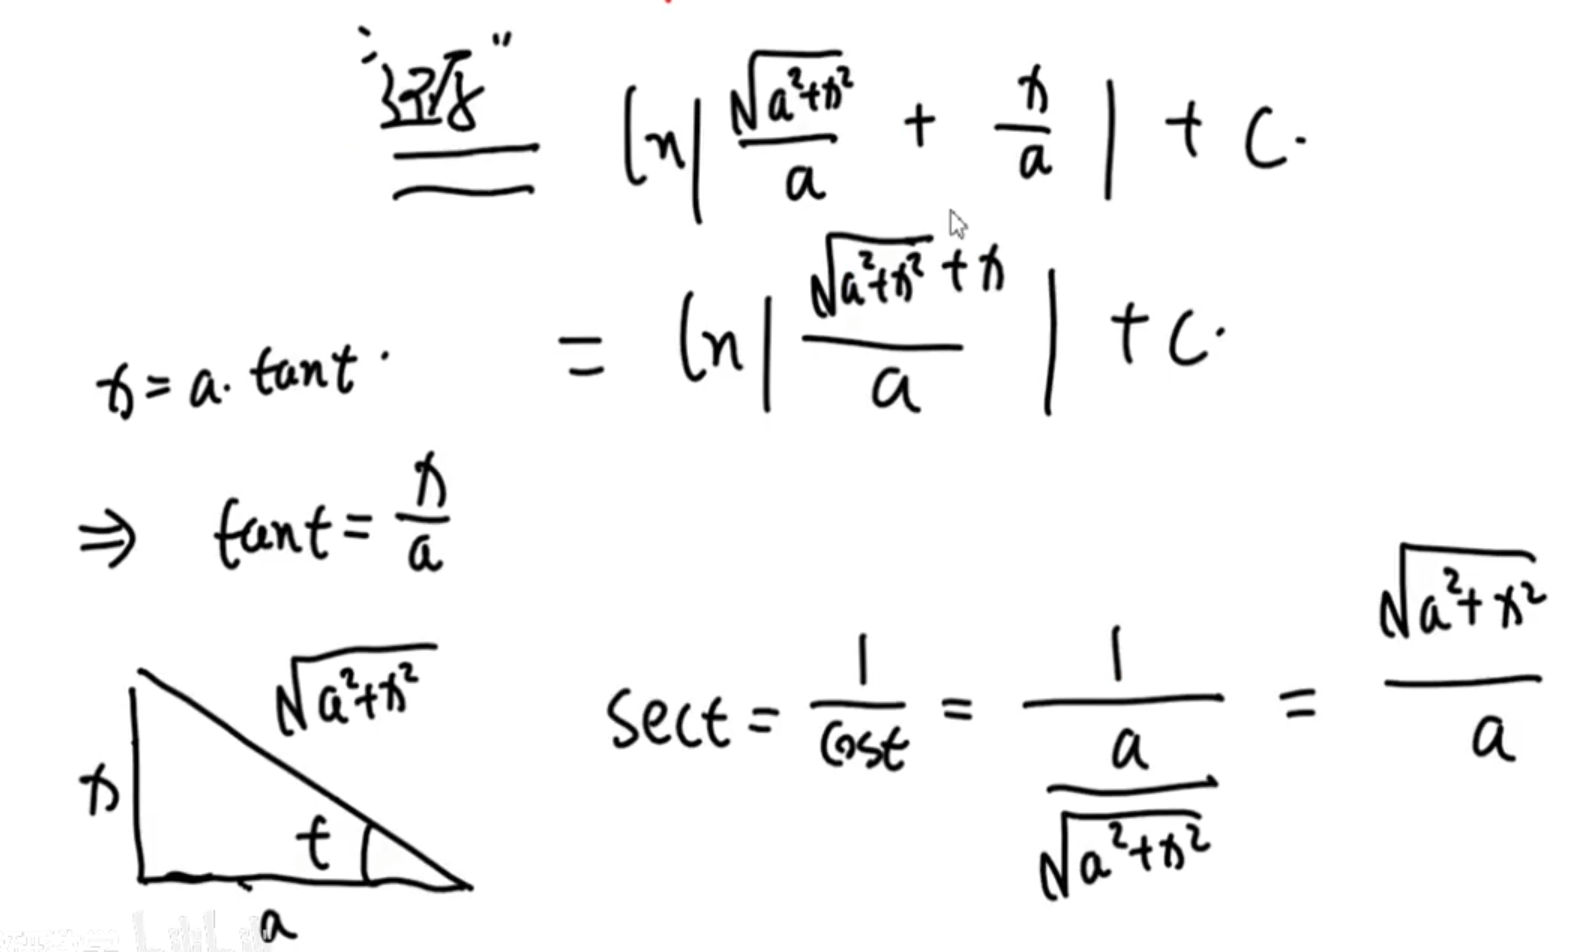 “还原” ln|√(a²+x²)/a + x/a| + C.
= ln|(√(a²+x²)+x)/a| + C.
x = a·tant.
⇒ tant = x/a
√(a²+x²)
sect = 1/cost = 1/(a/√(a²+x²)) = √(a²+x²)/a
x
t
a